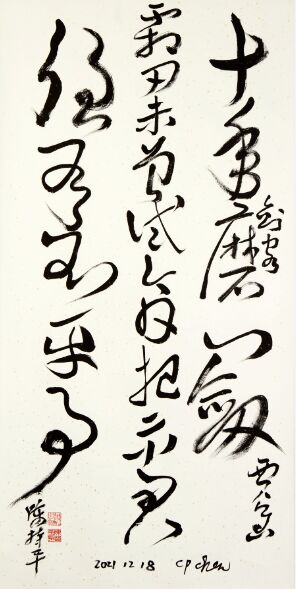 十年磨一劍
劍客
賈島
霜刃未曾試今把示君
誰平事
陳持平
2021 12 18 CP Chen